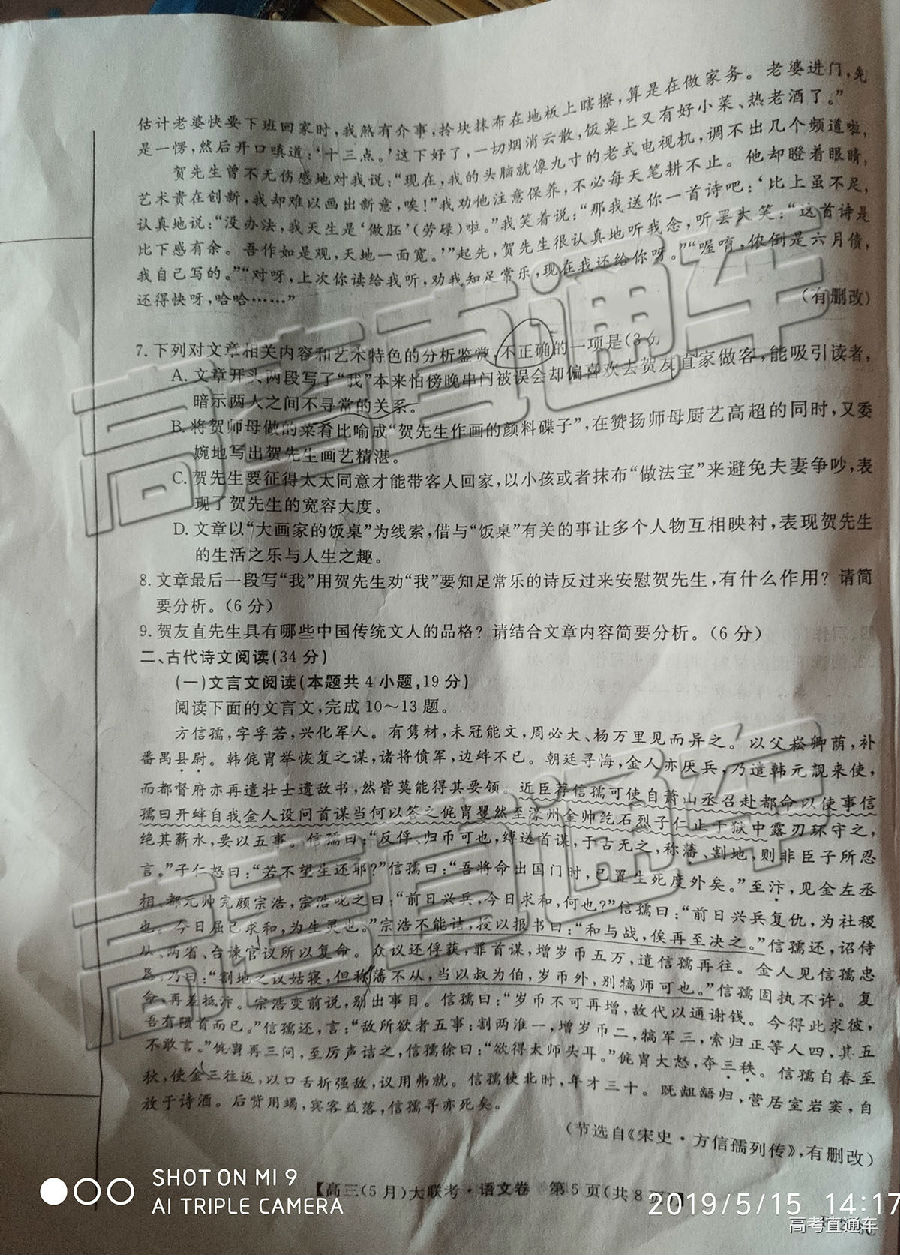 估计老婆快要下班回家时，我煞有介事，拎块抹布在地板上瞎擦，算是在做家务。老婆进门，先
是一愣，然后开口嗔道：‘十三点。’这下好了，一切烟消云散，饭桌上又有好小菜、热老酒了。”
贺先生曾不无伤感地对我说：“现在，我的头脑就像九寸的老式电视机，调不出几个频道啦，
艺术贵在创新，我却难以画出新意，唉！”我劝他注意保养，不必每天笔耕不止。他却瞪着眼睛，
认真地说：“没办法，我天生是‘做胚’（劳碌）啦。”我笑着说：“那我送你一首诗吧：‘比上虽不足，
比下感有余。吾作如是观，天地一面宽。’”起先，贺先生很认真地听我念，听罢大笑：“这首诗是
我自己写的。”“对呀，上次你读给我听，劝我知足常乐，现在我还给你呀。”“喔唷，侬倒是六月债，
还得快呀，哈哈……”
（有删改）
7.下列对文章相关内容和艺术特色的分析鉴赏，不正确的一项是（3分）
A.文章开头两段写了“我”本来怕傍晚串门被误会却偏喜欢去贺友直家做客，能吸引读者，
暗示两人之间不寻常的关系。
B.将贺师母做的菜肴比喻成“贺先生作画的颜料碟子”，在赞扬师母厨艺高超的同时，又委
婉地写出贺先生画艺精湛。
C.贺先生要征得太太同意才能带客人回家，以小孩或者抹布“做法宝”来避免夫妻争吵，表
现了贺先生的宽容大度。
D.文章以“大画家的饭桌”为线索，借与“饭桌”有关的事让多个人物互相映衬，表现贺先生
的生活之乐与人生之趣。
8.文章最后一段写“我”用贺先生劝“我”要知足常乐的诗反过来安慰贺先生，有什么作用？请简
要分析。（6分）
9.贺友直先生具有哪些中国传统文人的品格？请结合文章内容简要分析。（6分）
二、古代诗文阅读（34分）
（一）文言文阅读（本题共4小题，19分）
阅读下面的文言文，完成10～13题。
方信孺，字孚若，兴化军人。有隽材，未冠能文，周必大、杨万里见而异之。以父崧卿荫，补
番禺县尉。韩侂胄举恢复之谋，诸将偾军，边衅不已。朝廷寻海，金人亦厌兵，乃遣韩元靓来使，
而都督府亦再遣壮士遗敌书，然皆莫能得其要领。近臣荐信孺可使自萧山丞召赴都命以使事信
孺曰开衅自我金人设问首谋当何以答之侂胄矍然至濠州金帅纥石烈子仁止于狱中露刃环守之，
绝其薪水，要以五事。信孺曰：“反俘、归币可也，缚送首谋，于古无之，称藩、割地，则非臣子所忍
言。”子仁怒曰：“若不望生还耶？”信孺曰：“吾将命出国门时，已置生死度外矣。”至汴，见金左丞
相、都元帅完颜宗浩，宗浩叱之曰：“前日兴兵，今日求和，何也？”信孺曰：“前日兴兵复仇，为社稷
也。今日屈己求和，为生灵也。”宗浩不能诘，授以报书曰：“和与战，俟再至决之。”信孺还，诏侍
从、两省、台谏官议所以复命。众议还俘获，罪首谋，增岁币五万，遣信孺再往。金人见信孺忠
恳，乃曰：“割地之议姑寝，但称藩不从，当以叔为伯，岁币外，别犒师可也。”信孺固执不许。复
命，再差抵汴。宗浩变前说，别出事目。信孺曰：“岁币不可再增，故代以通谢钱。今得此求彼，
吾有陨首而已。”信孺还，言：“敌所欲者五事：割两淮一，增岁币二，犒军三，索归正等人四，其五
不敢言。”侂胄再三问，至厉声诘之，信孺徐曰：“欲得太师头耳。”侂胄大怒，夺三秩。信孺自春至
秋，使金三往返，以口舌折强敌，议用弗就。信孺使北时，年才三十。既龃龉归，营居室岩窦，自
放于诗酒。后赀用竭，宾客益落，信孺寻亦死矣。
（节选自《宋史·方信孺列传》，有删改）
【高三（5月）大联考·语文卷 第5页（共8页）】
SHOT ON MI 9
AI TRIPLE CAMERA
2019/5/15 14:17
高考直通车
高考直通车
高考直通车